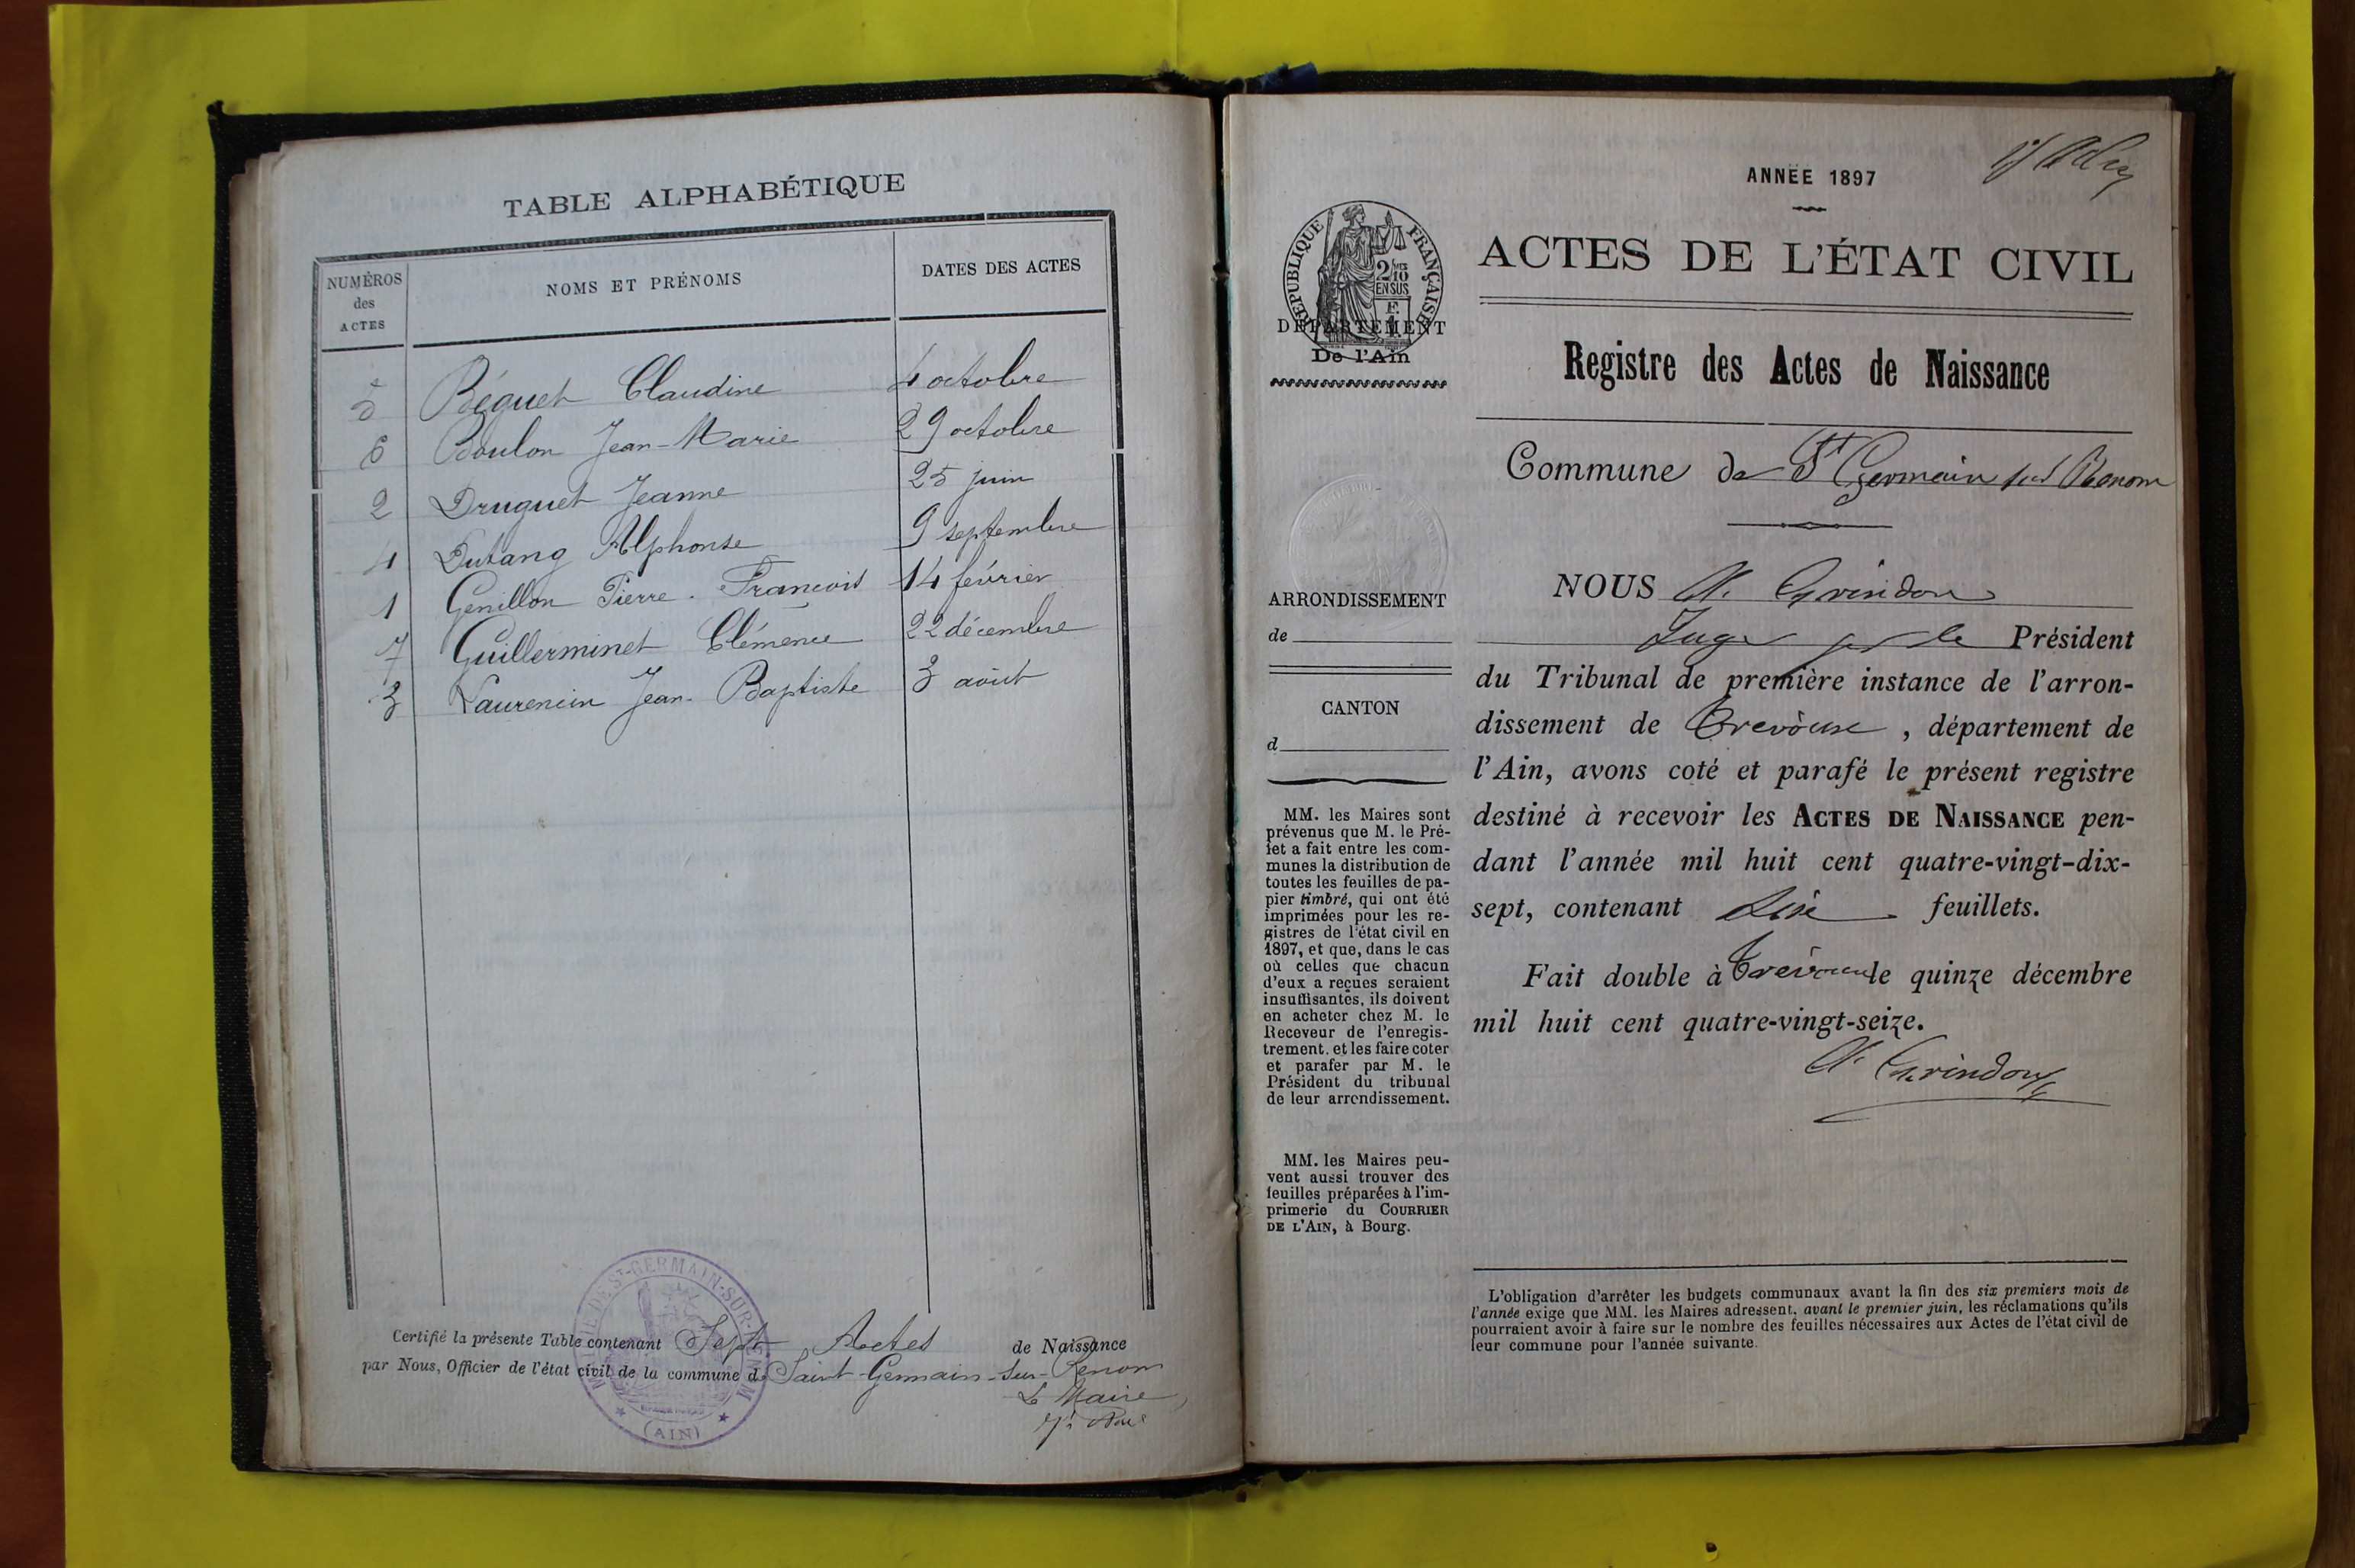 TABLE ALPHABÉTIQUE
NUMÉROS
des
ACTES
NOMS ET PRÉNOMS
DATES DES ACTES
5 Béguet Claudine 4 octobre
6 Boulon Jean-Marie 29 octobre
2 Druguet Jeanne 25 juin
4 Dutang Alphonse 9 septembre
1 Genillon Pierre-François 14 février
7 Guillerminet Clémence 22 décembre
3 Laurencin Jean-Baptiste 3 août
Certifié la présente Table contenant Sept Actes de Naissance
par Nous, Officier de l'état civil de la commune de Saint-Germain-sur-Renom
Le Maire
MAIRIE DE ST-GERMAIN-SUR-RENOM
(AIN)
ANNÉE 1897
RÉPUBLIQUE FRANÇAISE
2/10
EN SUS
DÉPARTEMENT
De l'Ain
ACTES DE L'ÉTAT CIVIL
Registre des Actes de Naissance
Commune de St Germain sur Renom
ARRONDISSEMENT
de
CANTON
d
MM. les Maires sont
prévenus que M. le Pré-
fet a fait entre les com-
munes la distribution de
toutes les feuilles de pa-
pier timbré, qui ont été
imprimées pour les re-
gistres de l'état civil en
1897, et que, dans le cas
où celles que chacun
d'eux a reçues seraient
insuffisantes, ils doivent
en acheter chez M. le
Receveur de l'enregis-
trement. et les faire coter
et parafer par M. le
Président du tribunal
de leur arrondissement.
MM. les Maires peu-
vent aussi trouver des
feuilles préparées à l'im-
primerie du COURRIER
DE L'AIN, à Bourg.
NOUS A. Grindon
Juge pr le Président
du Tribunal de première instance de l'arron-
dissement de Trévoux, département de
l'Ain, avons coté et parafé le présent registre
destiné à recevoir les ACTES DE NAISSANCE pen-
dant l'année mil huit cent quatre-vingt-dix-
sept, contenant feuillets.
Fait double à Trévoux le quinze décembre
mil huit cent quatre-vingt-seize.
A. Grindon
L'obligation d'arrêter les budgets communaux avant la fin des six premiers mois de
l'année exige que MM. les Maires adressent, avant le premier juin, les réclamations qu'ils
pourraient avoir à faire sur le nombre des feuilles nécessaires aux Actes de l'état civil de
leur commune pour l'année suivante.